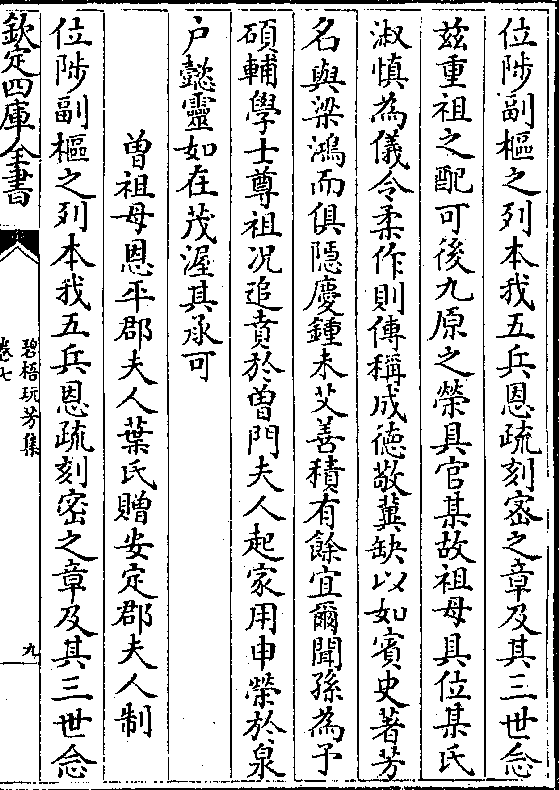 位陟副樞之列本我五兵恩疏刻密之章及其三世念
兹重祖之配可後九原之榮具官某故祖母具位某氏
淑慎為儀令柔作則傳稱成德敬冀缺以如賓史著芳
名與梁鴻而俱隱慶鍾未艾善積有餘宜爾聞孫為予
碩輔學士尊祖况追賁於曾門夫人起家用申榮於泉
户懿靈如在茂渥其承可
曾祖母恩平郡夫人葉氏贈安定郡夫人制
位陟副樞之列本我五兵恩疏刻密之章及其三世念
欽定四庫全書
碧梧玩芳集
卷七
九